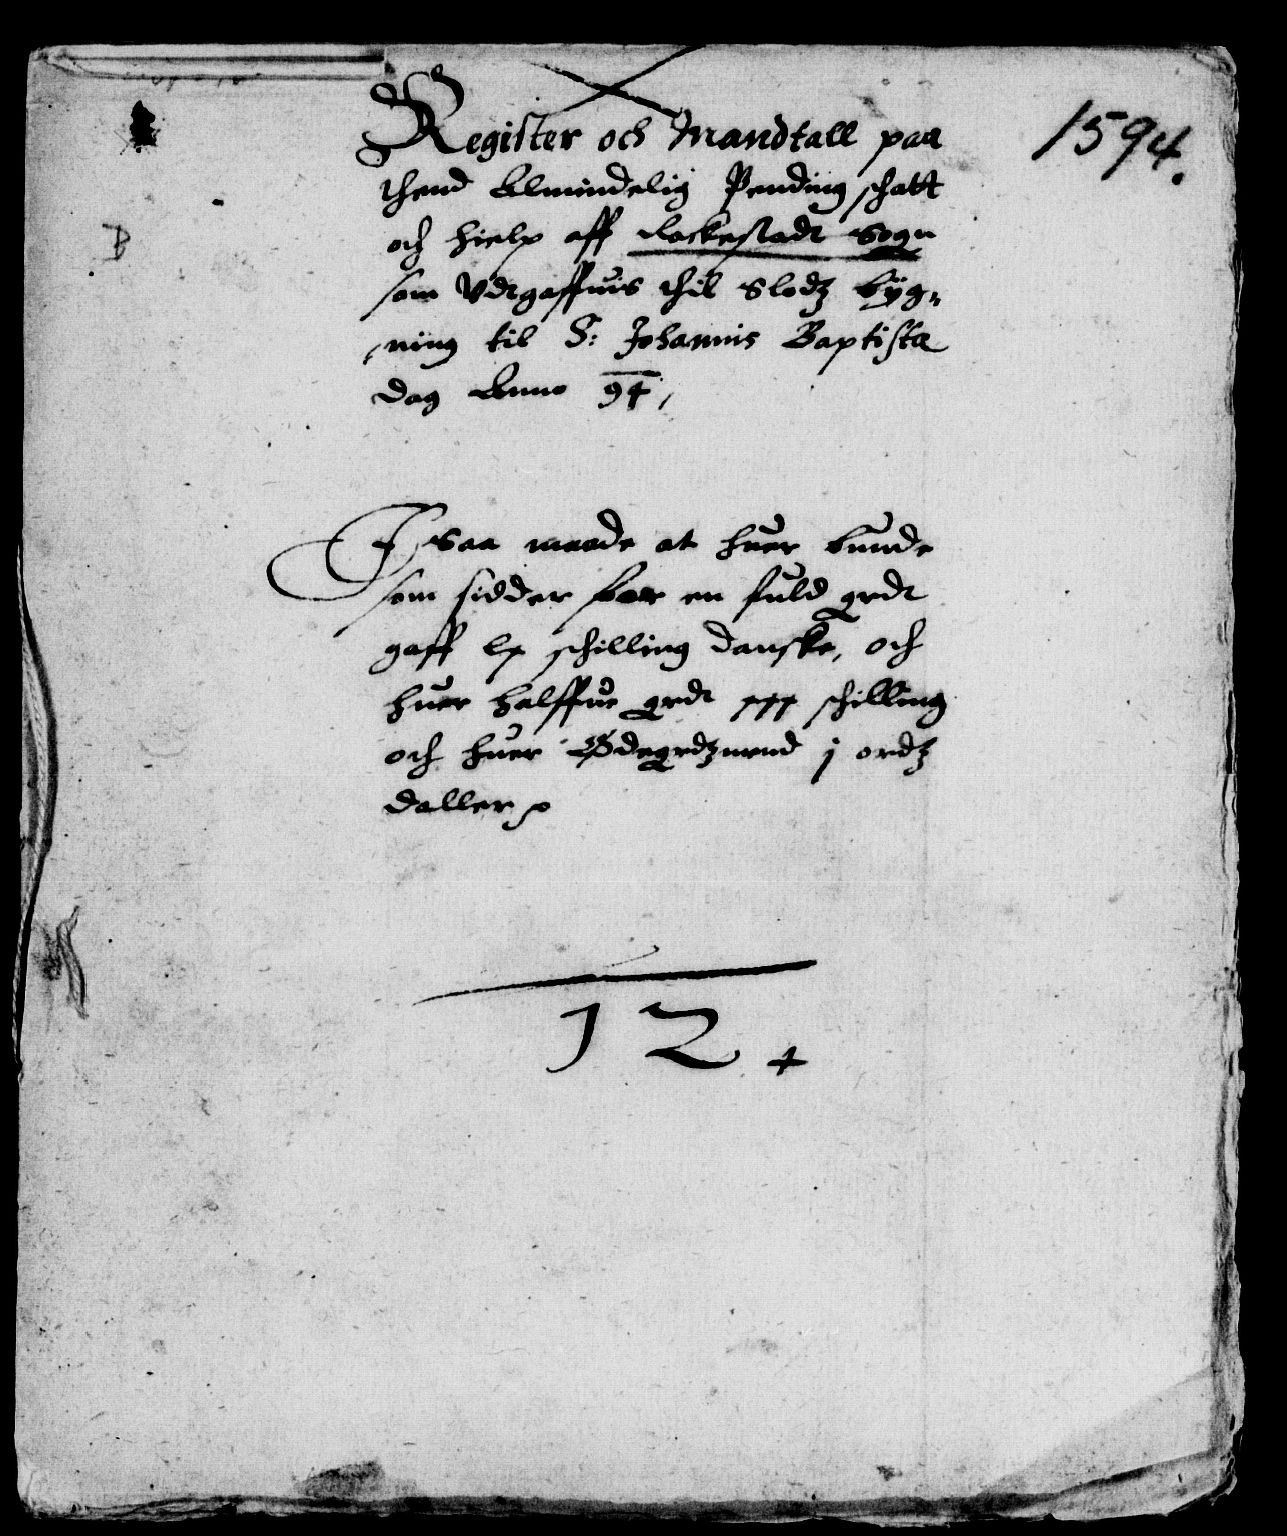 1594.
Register och Mandtall paa
thend Almindelig Pending schatt
och hielp aff Lockestadt Sogn
som Vdtgaffuis thil Slodtz byg-
ning til S: Johannis Baptista
dag Anno 94,
B
I Saa maade at huer bunde
som sidder for en fuld grdt
gaff lx schilling danske, och
huer halffue grdt xxx schilling
och huer Ødegrdzmend j ordtz
daller
12